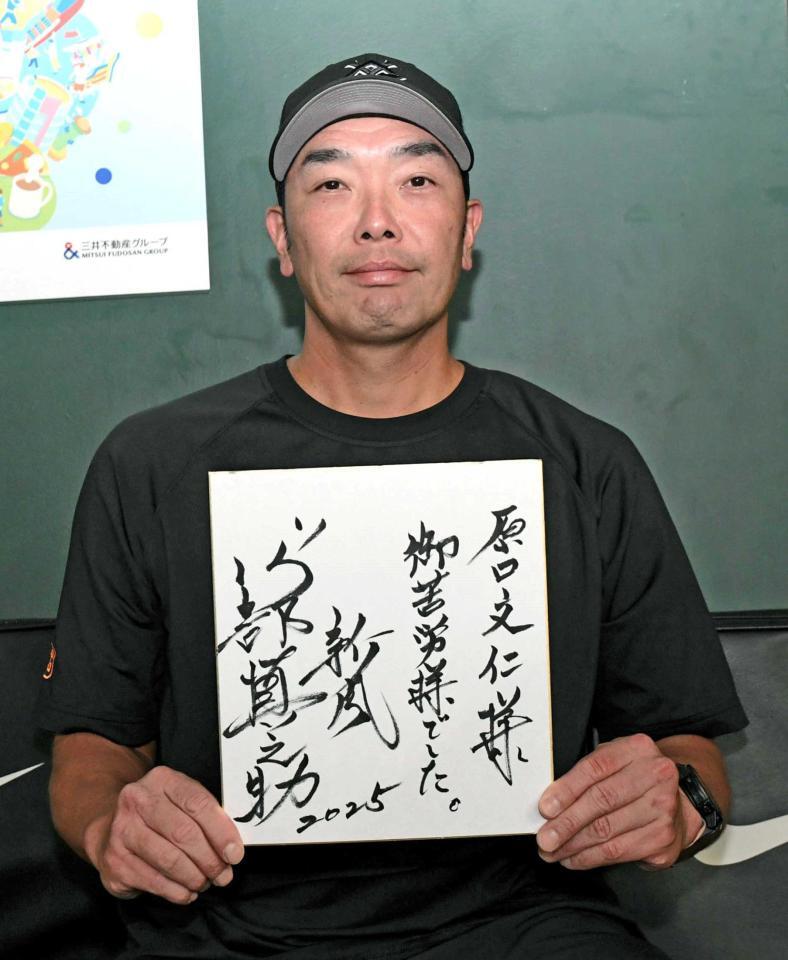 三井不動産グループ
MITSUI FUDOSAN GROUP
原口文仁様
御苦労様でした。
新風
阿部慎之助
2025